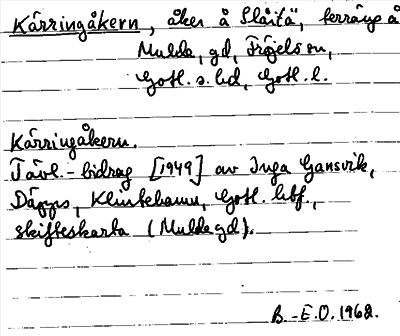 Kärringåkern, åker å Slåitä, terräng å
Mulde, gd, Fröjels sn,
Gotl. s. hd, Gotl. l.
Kärringåkern.
Tävl.-bidrag [1949] av Inga Gansvik,
Däpps, Klintehamn, Gotl. hbf.,
skifteskarta (Mulde gd).
B.-E.O. 1962.